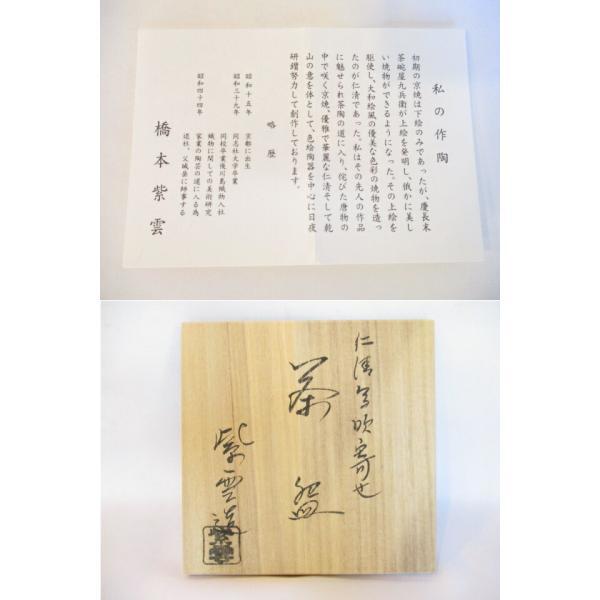 私の作陶
初期の京焼は下絵のみであったが、慶長末
茶碗屋九兵衛が上絵を発明し、俄かに美し
い焼物ができるようになった。その上絵を
駆使し、大和絵風の優美な色彩の焼物を造っ
たのが仁清であった。私はその先人の作品
に魅せられ茶陶の道に入り、侘びた唐物の
中で咲く京焼、優雅で華麗な仁清そして乾
山の意を体として、色絵陶器を中心に日夜
研鑽努力して創作しております。
略歴
昭和十五年 京都に出生
昭和三十九年 同志社大学卒業
同校卒業後川島織物入社
織物に関しての美術研究
昭和四十四年 家業の陶芸の道に入る為
退社、父城岳に師事する
橋本紫雲
仁清写吹寄せ
茶盌
紫雲造